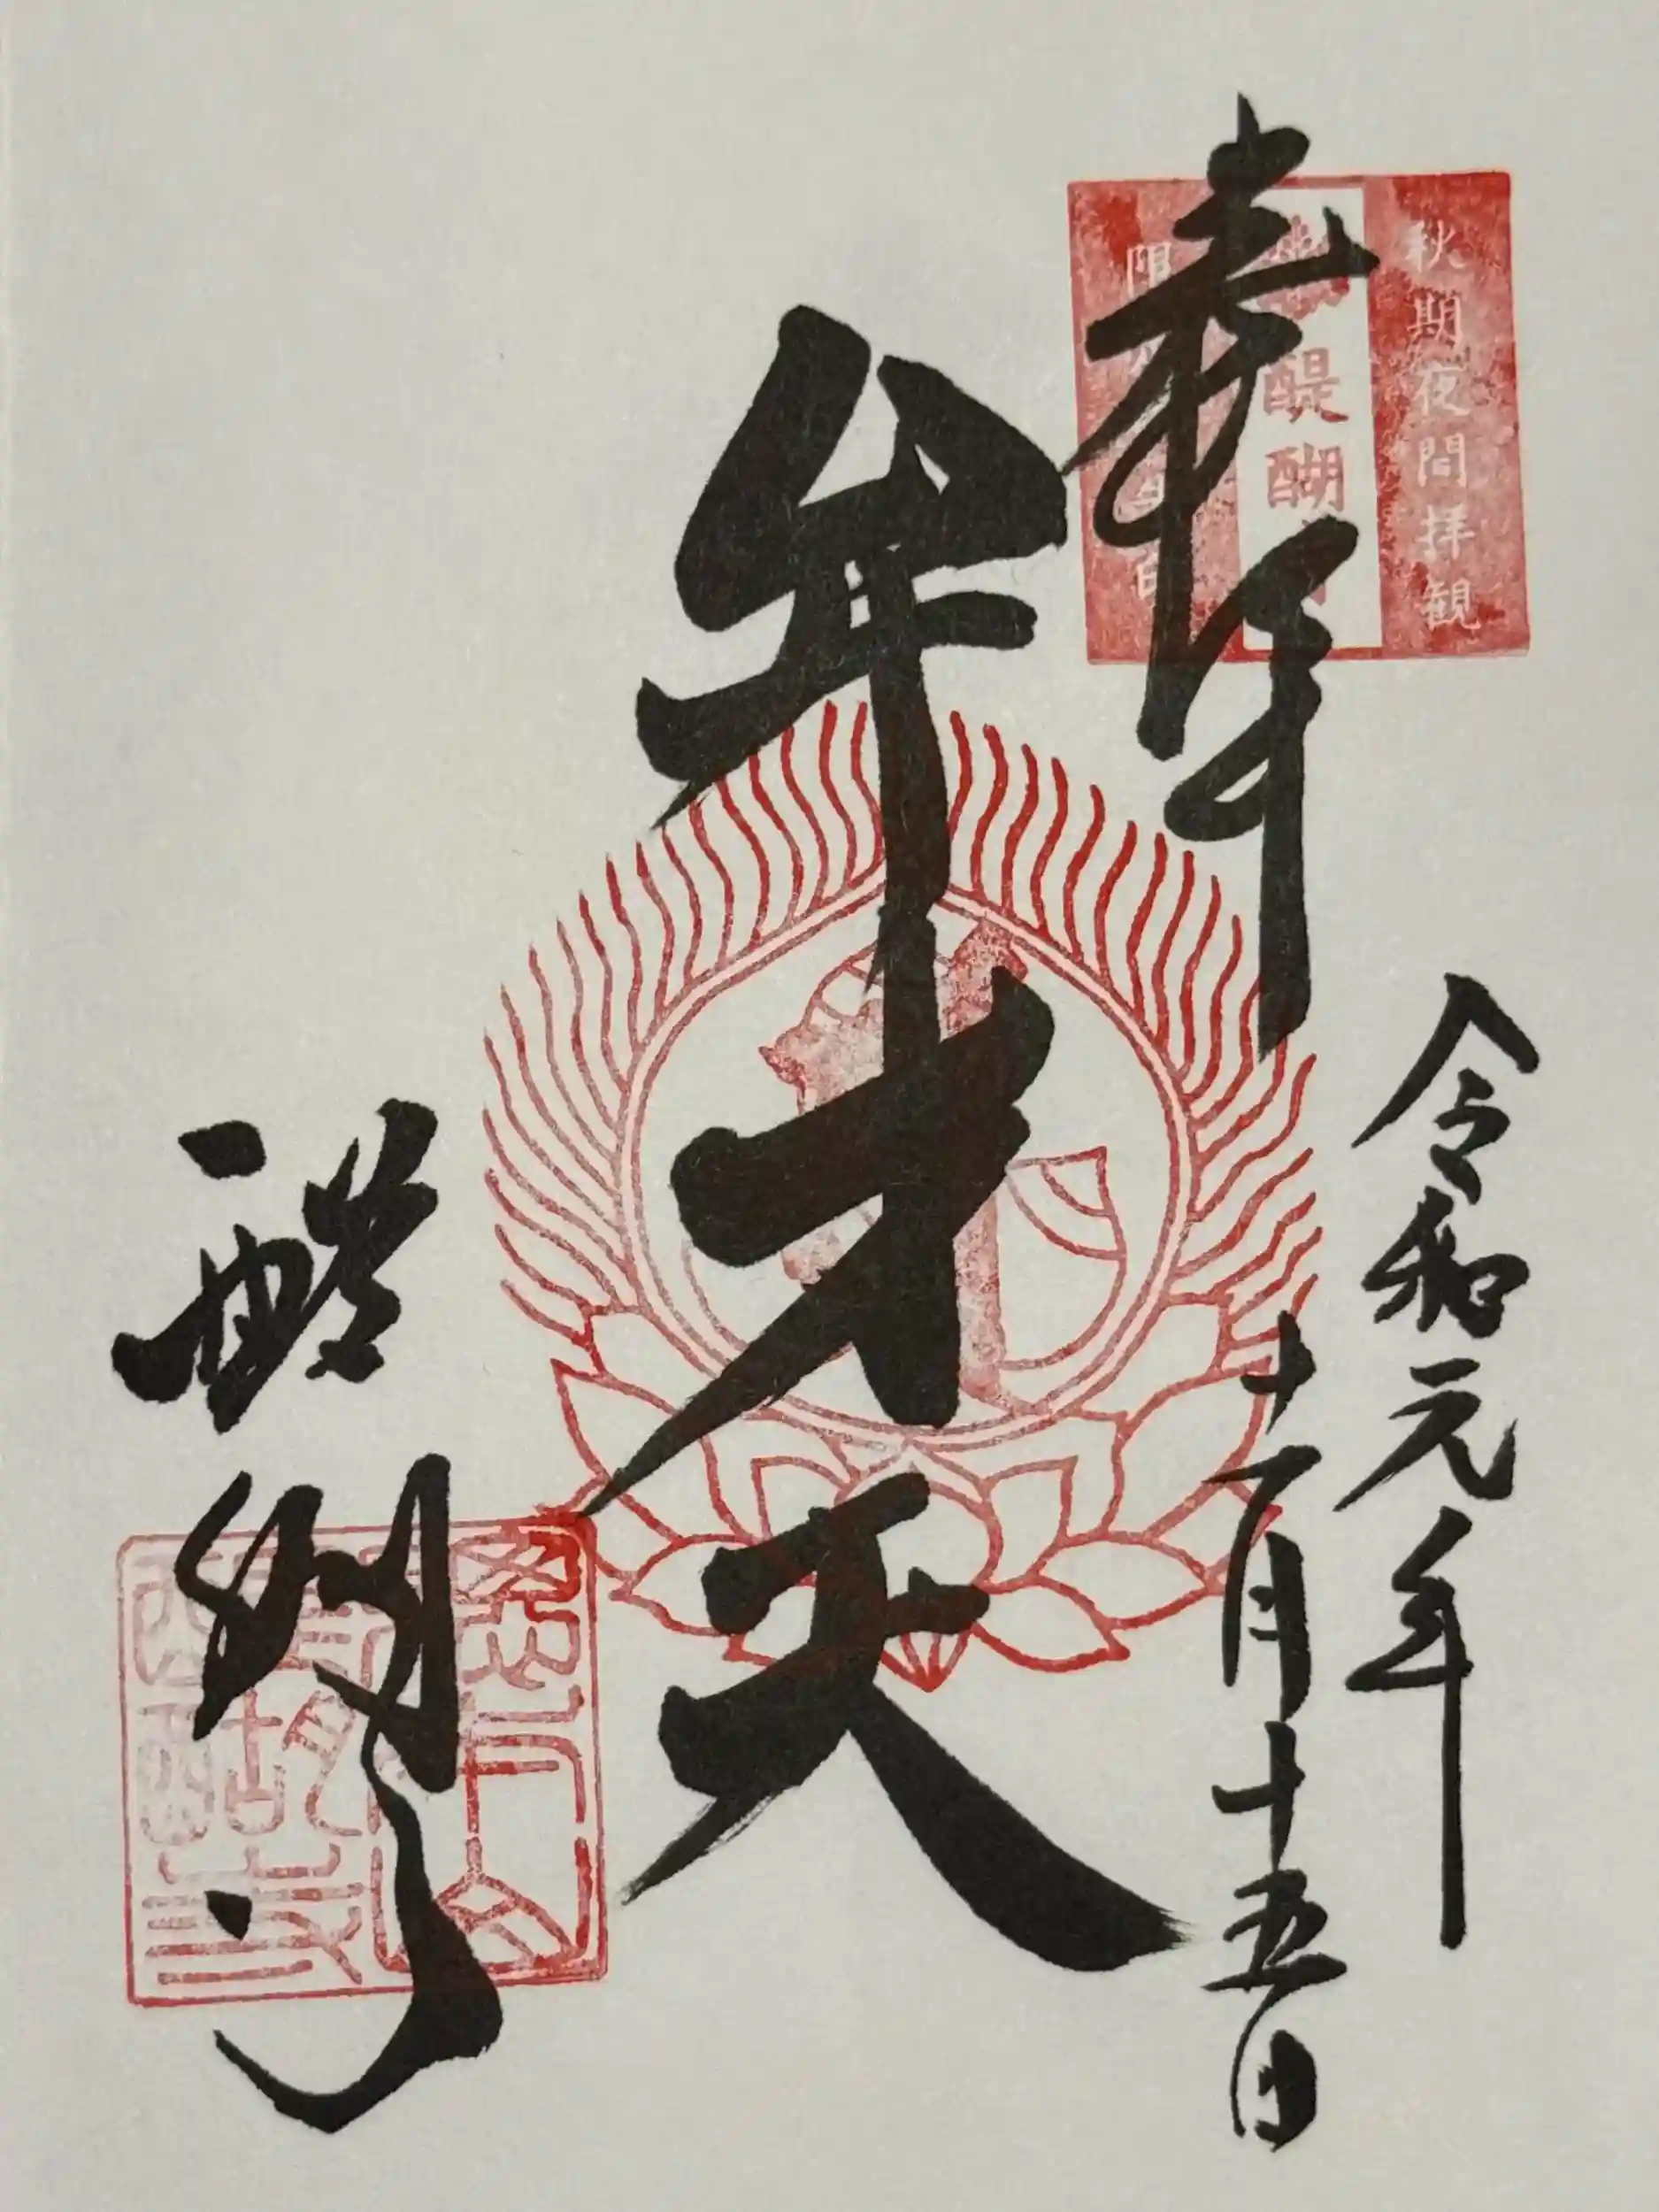 秋期夜間拝観
醍醐
奉拝
令和元年
十一月十五日
弁才天
醍醐寺